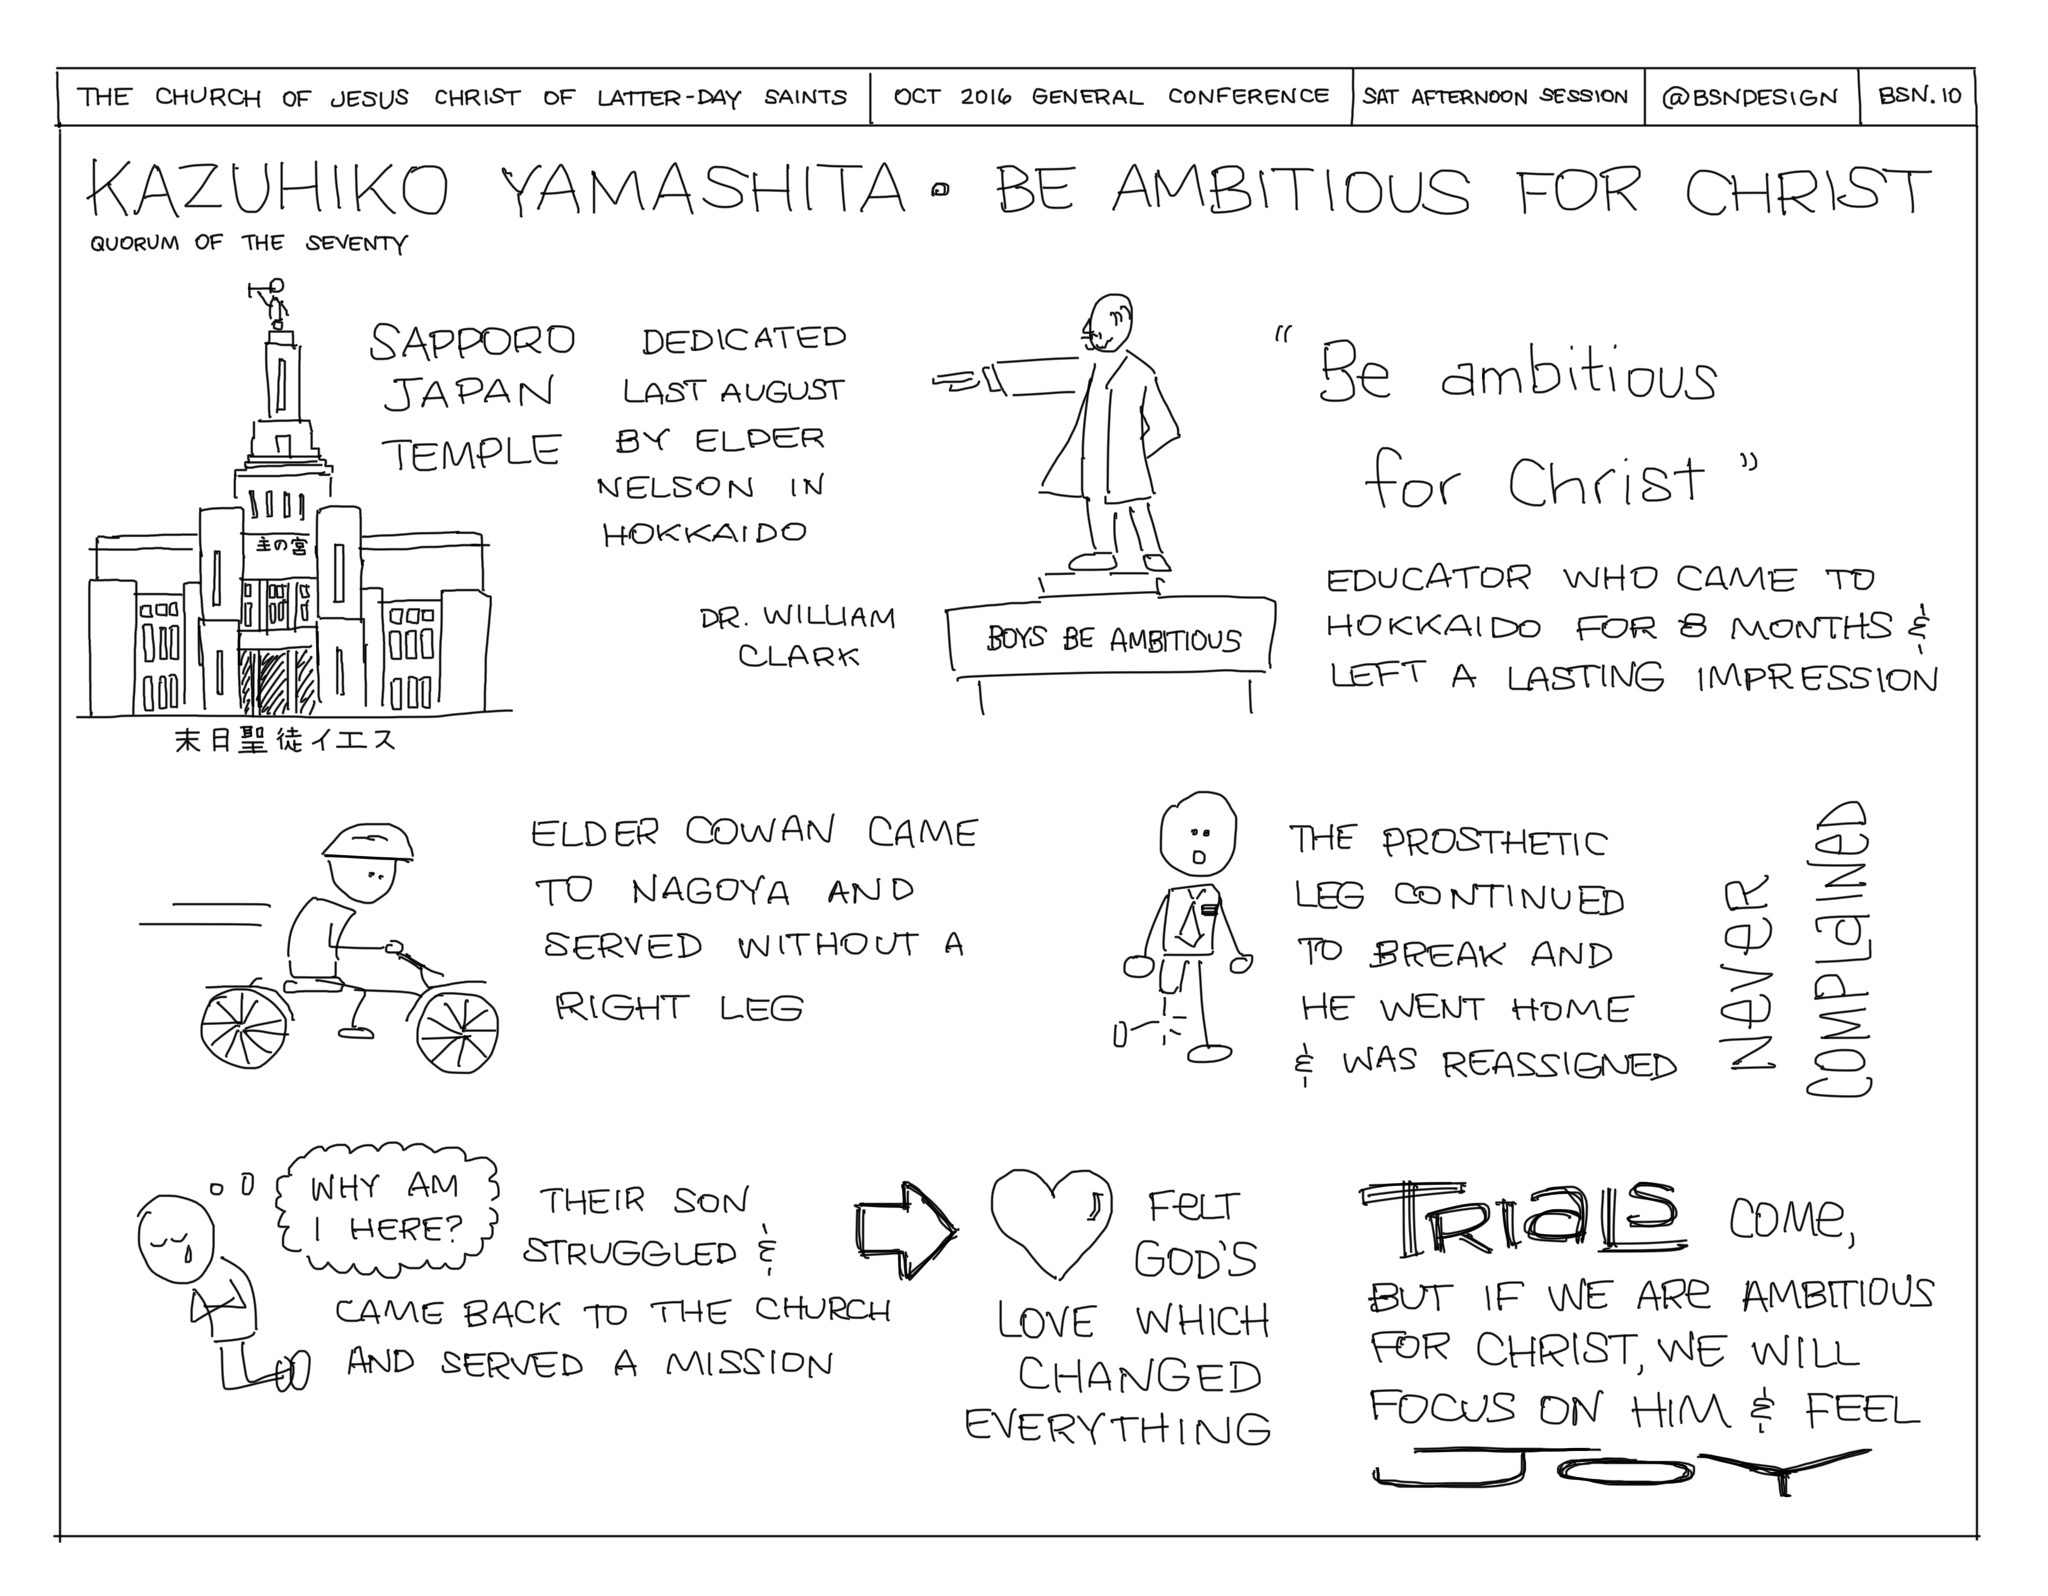 THE CHURCH OF JESUS CHRIST OF LATTER-DAY SAINTS
OCT 2016 GENERAL CONFERENCE
SAT AFTERNOON SESSION
@BSNDESIGN
BSN.10
KAZUHIKO YAMASHITA • BE AMBITIOUS FOR CHRIST
QUORUM OF THE SEVENTY
主の宮
末日聖徒イエス
SAPPORO
JAPAN
TEMPLE
DEDICATED
LAST AUGUST
BY ELDER
NELSON IN
HOKKAIDO
DR. WILLIAM
CLARK
BOYS BE AMBITIOUS
“Be ambitious
for Christ”
EDUCATOR WHO CAME TO
HOKKAIDO FOR 8 MONTHS &
LEFT A LASTING IMPRESSION
ELDER COWAN CAME
TO NAGOYA AND
SERVED WITHOUT A
RIGHT LEG
THE PROSTHETIC
LEG CONTINUED
TO BREAK AND
HE WENT HOME
& WAS REASSIGNED
NeVeR
COMPLaINeD
WHY AM
I HERE?
THEIR SON
STRUGGLED &
CAME BACK TO THE CHURCH
AND SERVED A MISSION
FeLT
GOD'S
LOVE WHICH
CHANGED
EVERYTHING
TRIaLS COMe,
BUT IF WE ARe AMBITIOUS
FOR CHRIST, WE WILL
FOCUS ON HIM & FEEL
JOY